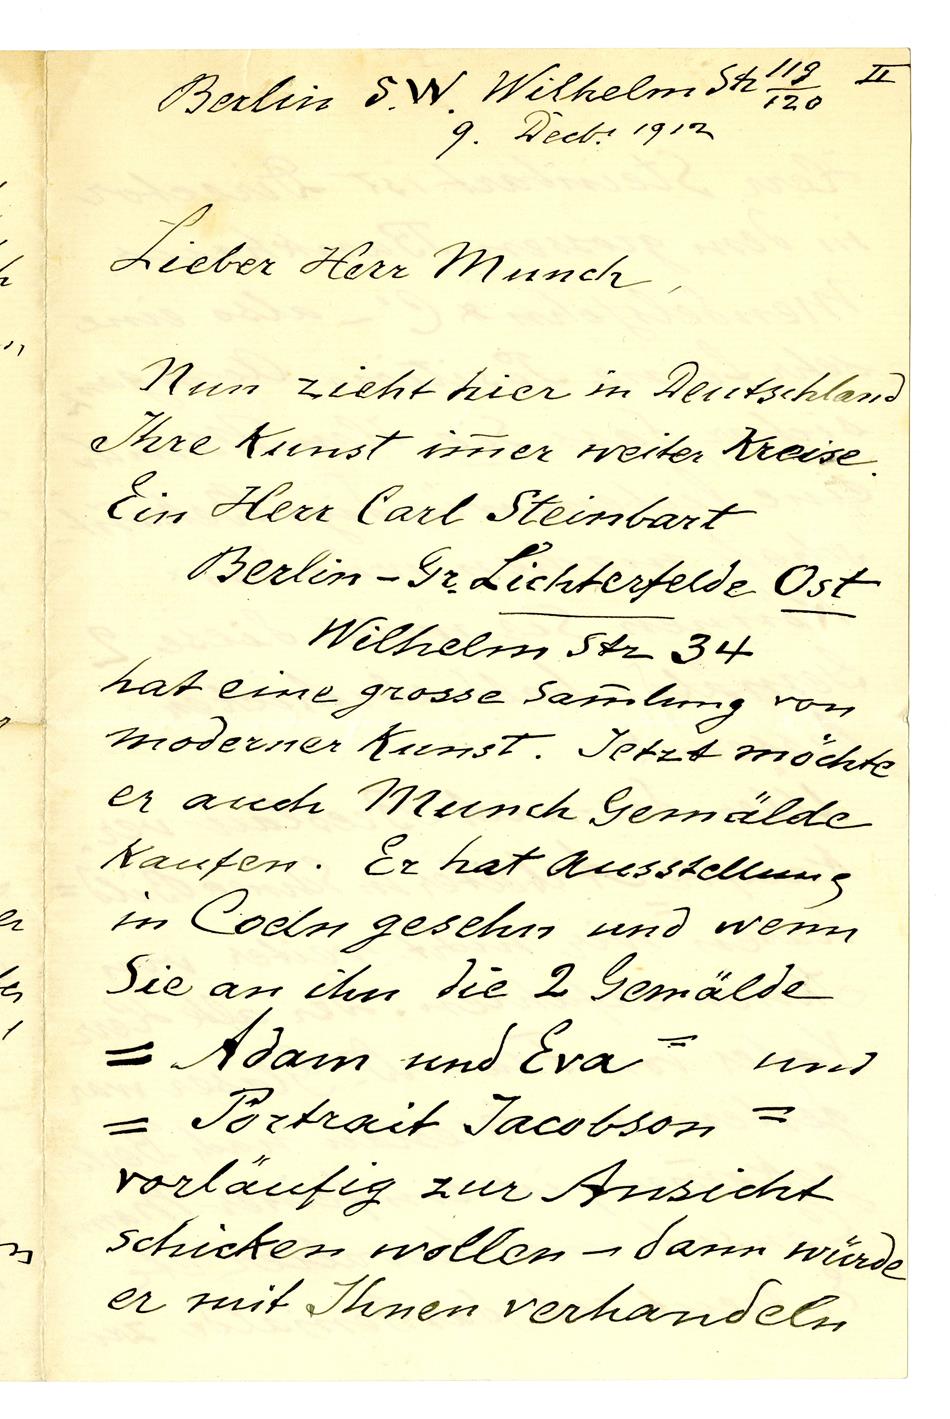 Berlin S.W. Wilhelm Str 119/120 II
9. Decbr 1912
Lieber Herr Munch,
Nun zieht hier in Deutschland
Ihre Kunst im̄er weiter Kreise.
Ein Herr Carl Steinbart
Berlin – Gr. Lichterfelde Ost
Wilhelm Str 34
hat eine grosse Sam̄lung von
moderner Kunst. Jetzt möchte
er auch Munch Gemälde
Kaufen. Er hat Ausstellung
in Coeln gesehn und wenn
Sie an ihn die 2 Gemälde
= Adam und Eva = und
= Portrait Jacobson =
vorläufig zur Ansicht
schicken wollen – dann würde
er mit Ihnen verhandeln